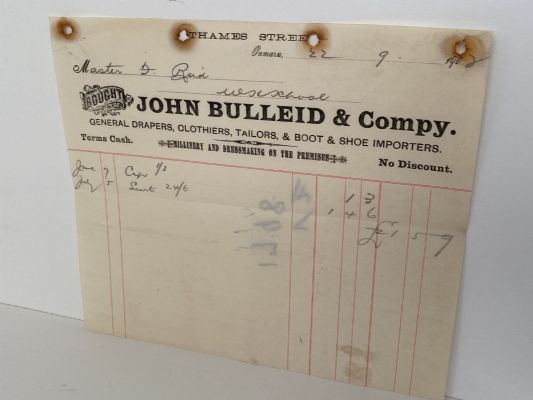 THAMES STREE
Oamaru, 22 9 1902
Master F. Reid
W S School
BOUGHT
JOHN BULLEID & Compy.
GENERAL DRAPERS, CLOTHIERS, TAILORS, & BOOT & SHOE IMPORTERS.
Terms Cash. MILLINERY AND DRESSMAKING ON THE PREMISES No Discount.
June 7 Cap 1/3 1 3
July 5 Suit 24/6 1 4 6
£1 5 9